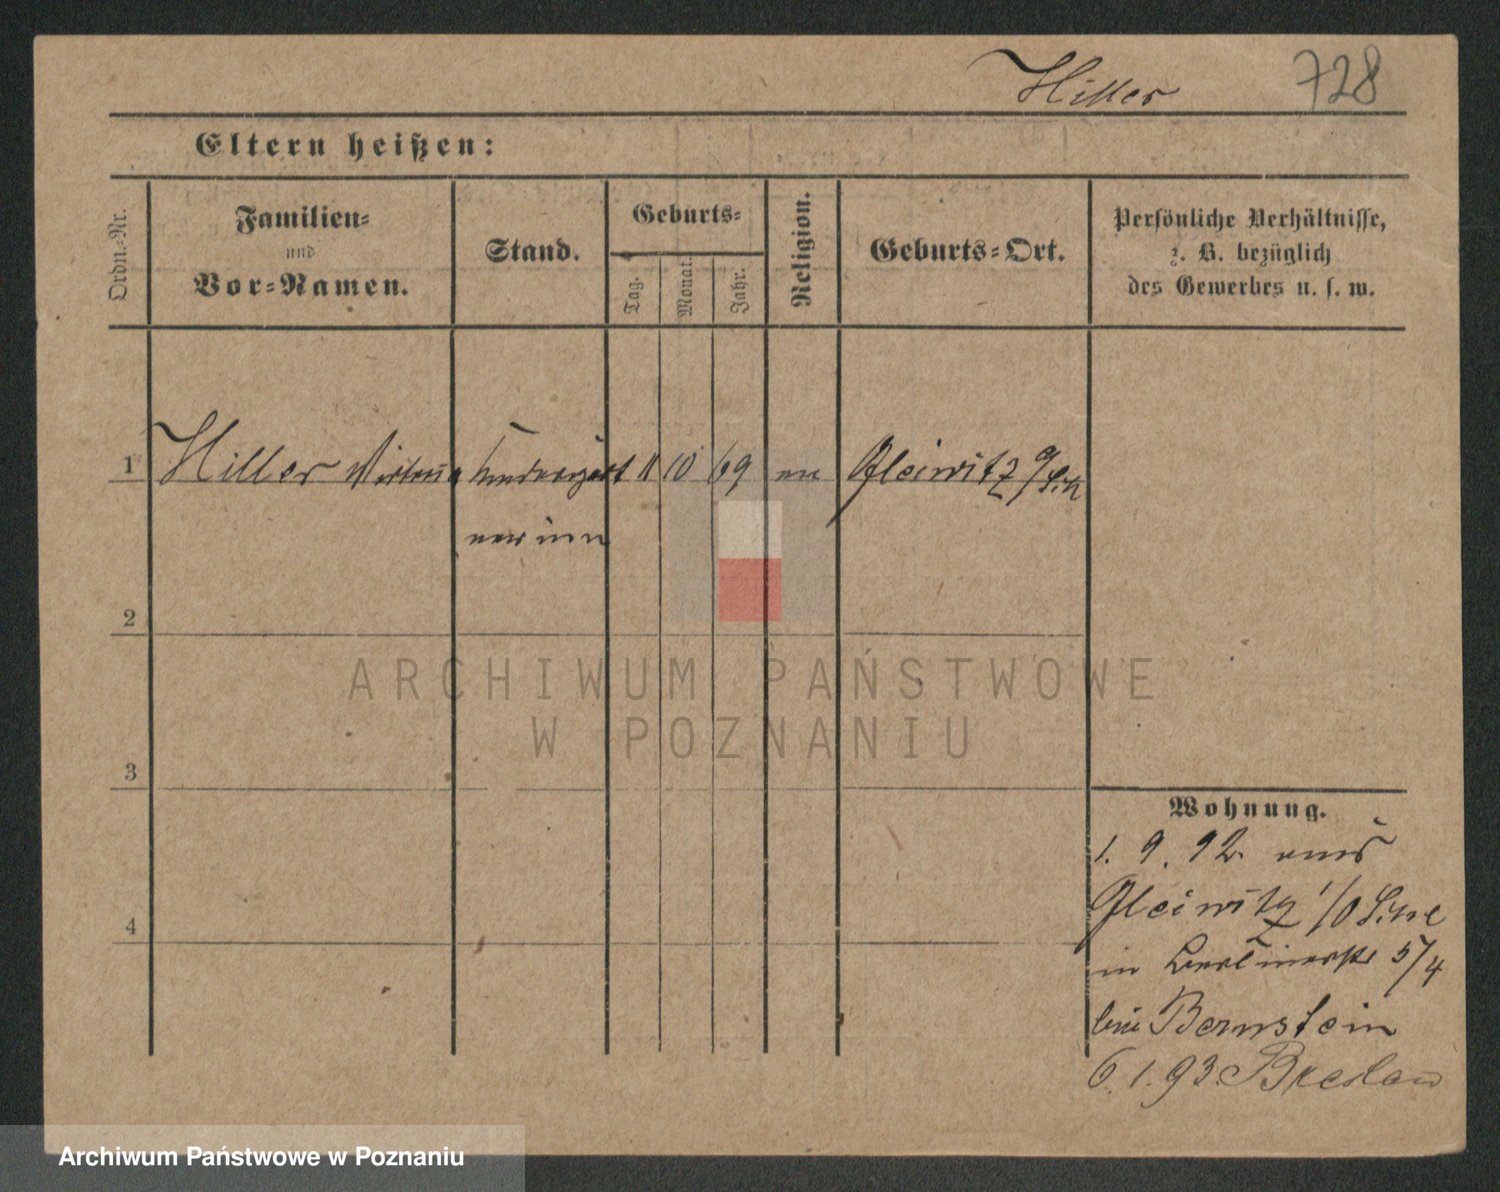 Hiller 728
Eltern heißen:
Ordn.-Nr.
Familien-
und
Vor-Namen.
Stand.
Geburts-
Tag.
Monat.
Jahr.
Religion.
Geburts-Ort.
Persönliche Verhältnisse,
z. B. bezüglich
des Gewerbes u. s. w.
1 Hiller 11 10 69 Gleiwitz
2
ARCHIWUM PAŃSTWOWE
W POZNANIU
3
Wohnung.
1. 9. 92. aus
Gleiwitz
in Berlinerstr 5/4
bei Bernstein
6.1.93. Breslau
4
Archiwum Państwowe w Poznaniu